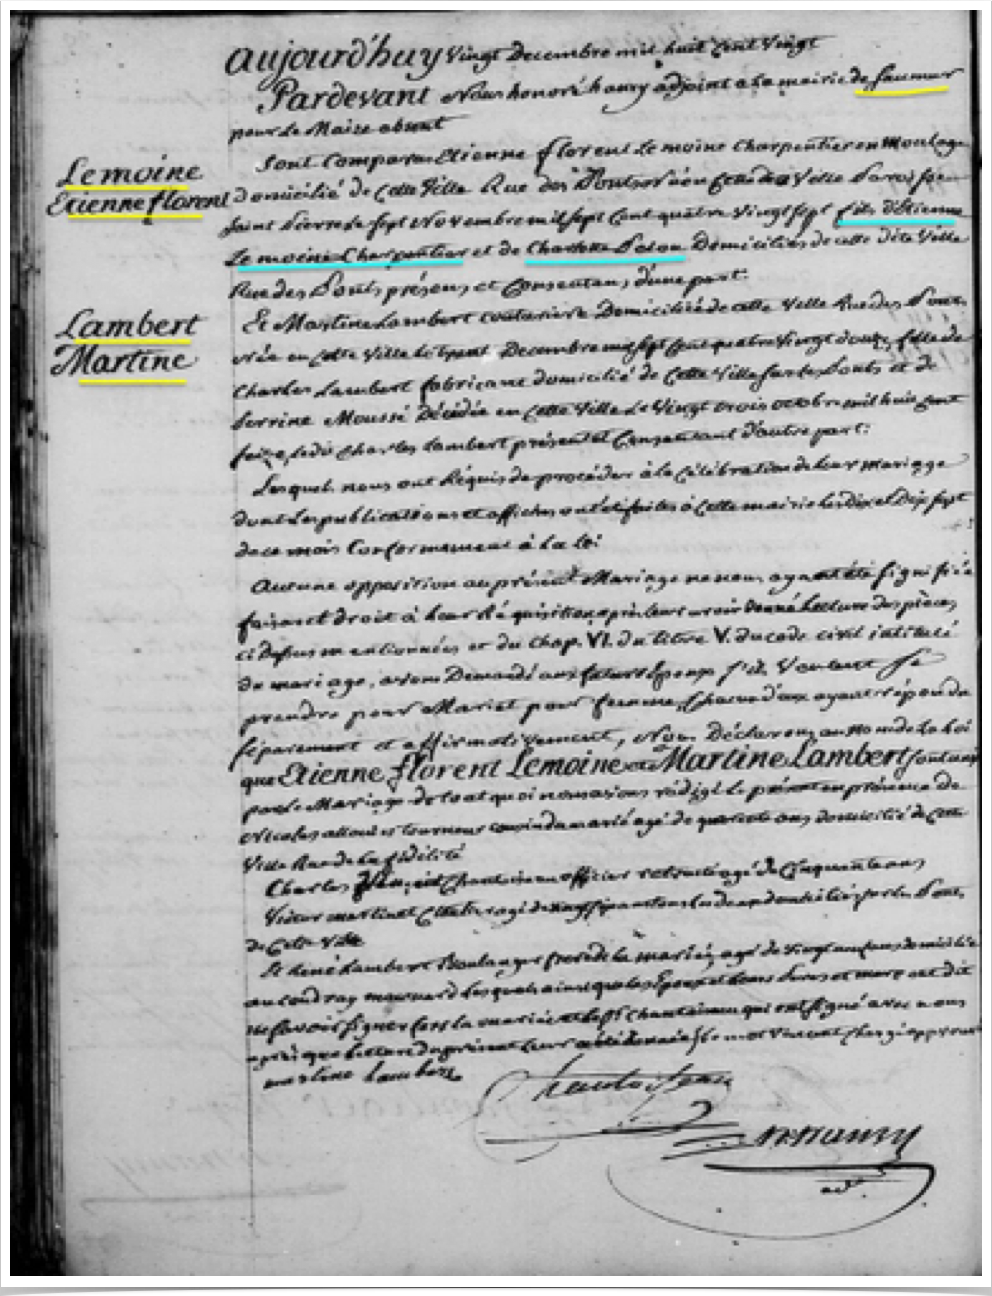 aujourd'huy Vingt Decembre mil huit Cent Vingt
Pardevant Nous honoré haury adjoint a la mairie de Saumur
pour le Maire absent
Lemoine
Etienne florent
Sont Comparus Etienne florent Lemoine Charpentier en moulage
domicilié de Cette Ville Rue des Ponts né en Cette Ville Paroisse
Saint Pierre le sept Novembre mil sept Cent quatre Vingt sept fils d'Etienne
Lemoine Charpentier et de Charlotte Domiciliés de cette dite Ville
Rue des Ponts, présens et Consentans, d'une part.
Lambert
Martine
Et Martine Lambert couturière Domiciliée de cette Ville Rue des Ponts
née en cette Ville le trente Decembre mil sept Cent quatre Vingt douze, fille de
Charles Lambert fabricant domicilié de Cette Ville sur les Ponts et de
Perrine Moussé Décédée en Cette Ville le Vingt trois octobre mil huit Cent
seize, ledit Charles Lambert présent et Consentant d'autre part:
Lesquels nous ont Réquis de procéder à la Célébration de leur mariage
dont les publications et affiches ont été faites à Cette mairie les Dix et Dix sept
de ce mois Conformément à la loi
Aucune opposition au présent Mariage ne nous ayant été signifiée
faisant droit à leur Réquisition après leur avoir donné Lecture des pièces
ci Dessus mentionnées et du Chap. VI. du titre V. du code civil intitulé
du mariage, avons Demandé aux futurs Epoux s'ils Veulent se
prendre pour Mari et pour femme, Chacun d'eux ayant répondu
séparément et affirmativement, Nous Déclarons au Nom de la loi
que Etienne florent Lemoine et Martine Lambert sont unis
par le Mariage de tout quoi nous avons rédigé le présent en présence de
Nicolas tourneur cousin du marié agé de quarante ans domicilié de Cette
Ville Rue de la fidélité
Charles officier retraité agé de Cinquante ans
Victor martinet agé de ans tous les deux domiciliés sur les Ponts
de Cette Ville
Et René Lambert Boulanger frere de la mariée, agé de Vingt ans domicilié
au Coudray macouard lesquels ainsi que les Epoux et leurs Peres et mere ont dit
ne savoir signer fors la mariée et le Sr qui ont signé avec nous
après que lecture du présent leur a été donnée le mot Vincent Chargé approuvé
martine lambert